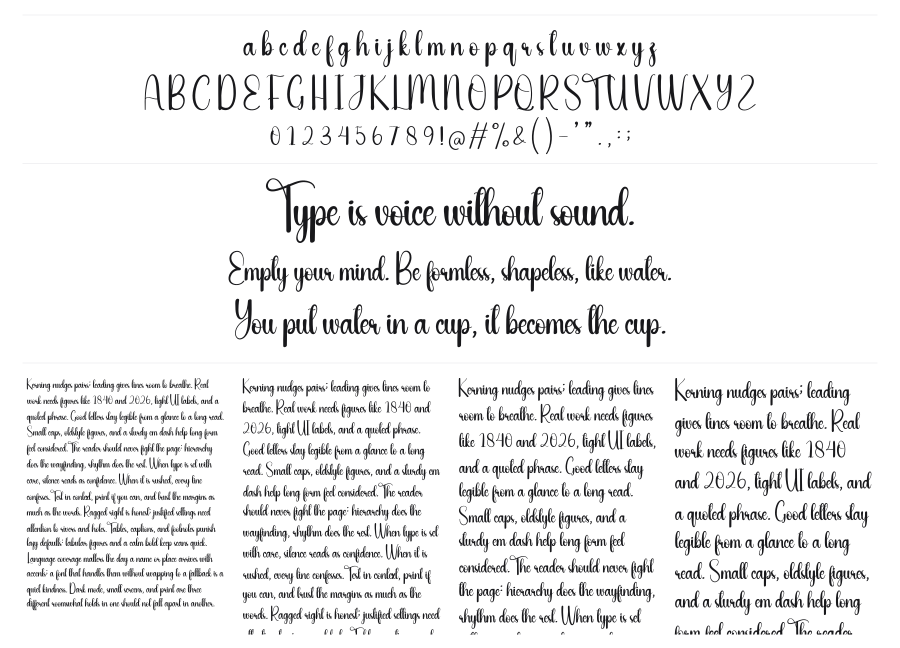 a b c d e f g h i j k l m n o p q r s t u v w x y z
A B C D E F G H I J K L M N O P Q R S T U V W X Y Z
0 1 2 3 4 5 6 7 8 9 ! @ # % & ( ) - ' " . , : ;
Type is voice without sound.
Empty your mind. Be formless, shapeless, like water.
You put water in a cup, it becomes the cup.
Kerning nudges pairs; leading gives lines room to breathe. Real
work needs figures like 1840 and 2026, tight UI labels, and a
quoted phrase. Good letters stay legible from a glance to a long read.
Small caps, oldstyle figures, and a sturdy em dash help long form
feel considered. The reader should never fight the page: hierarchy
does the wayfinding, rhythm does the rest. When type is set with
care, silence reads as confidence. When it is rushed, every line
confesses. Test in context, print if you can, and trust the margins as
much as the words. Ragged right is honest; justified settings need
attention to rivers and holes. Tables, captions, and footnotes punish
lazy defaults: tabular figures and a calm bold keep scans quick.
Language coverage matters the day a name or place arrives with
accents; a font that handles them without swapping to a fallback is a
quiet kindness. Dark mode, small screens, and print are three
different rooms; what holds in one should not fall apart in another.
Kerning nudges pairs; leading gives lines room to
breathe. Real work needs figures like 1840 and
2026, tight UI labels, and a quoted phrase.
Good letters stay legible from a glance to a long
read. Small caps, oldstyle figures, and a sturdy em
dash help long form feel considered. The reader
should never fight the page: hierarchy does the
wayfinding, rhythm does the rest. When type is set
with care, silence reads as confidence. When it is
rushed, every line confesses. Test in context, print if
you can, and trust the margins as much as the
words. Ragged right is honest; justified settings need
Kerning nudges pairs; leading gives lines
room to breathe. Real work needs figures
like 1840 and 2026, tight UI labels,
and a quoted phrase. Good letters stay
legible from a glance to a long read.
Small caps, oldstyle figures, and a
sturdy em dash help long form feel
considered. The reader should never fight
the page: hierarchy does the wayfinding,
rhythm does the rest. When type is set
Kerning nudges pairs; leading
gives lines room to breathe. Real
work needs figures like 1840
and 2026, tight UI labels, and
a quoted phrase. Good letters stay
legible from a glance to a long
read. Small caps, oldstyle figures,
and a sturdy em dash help long
form feel considered. The reader